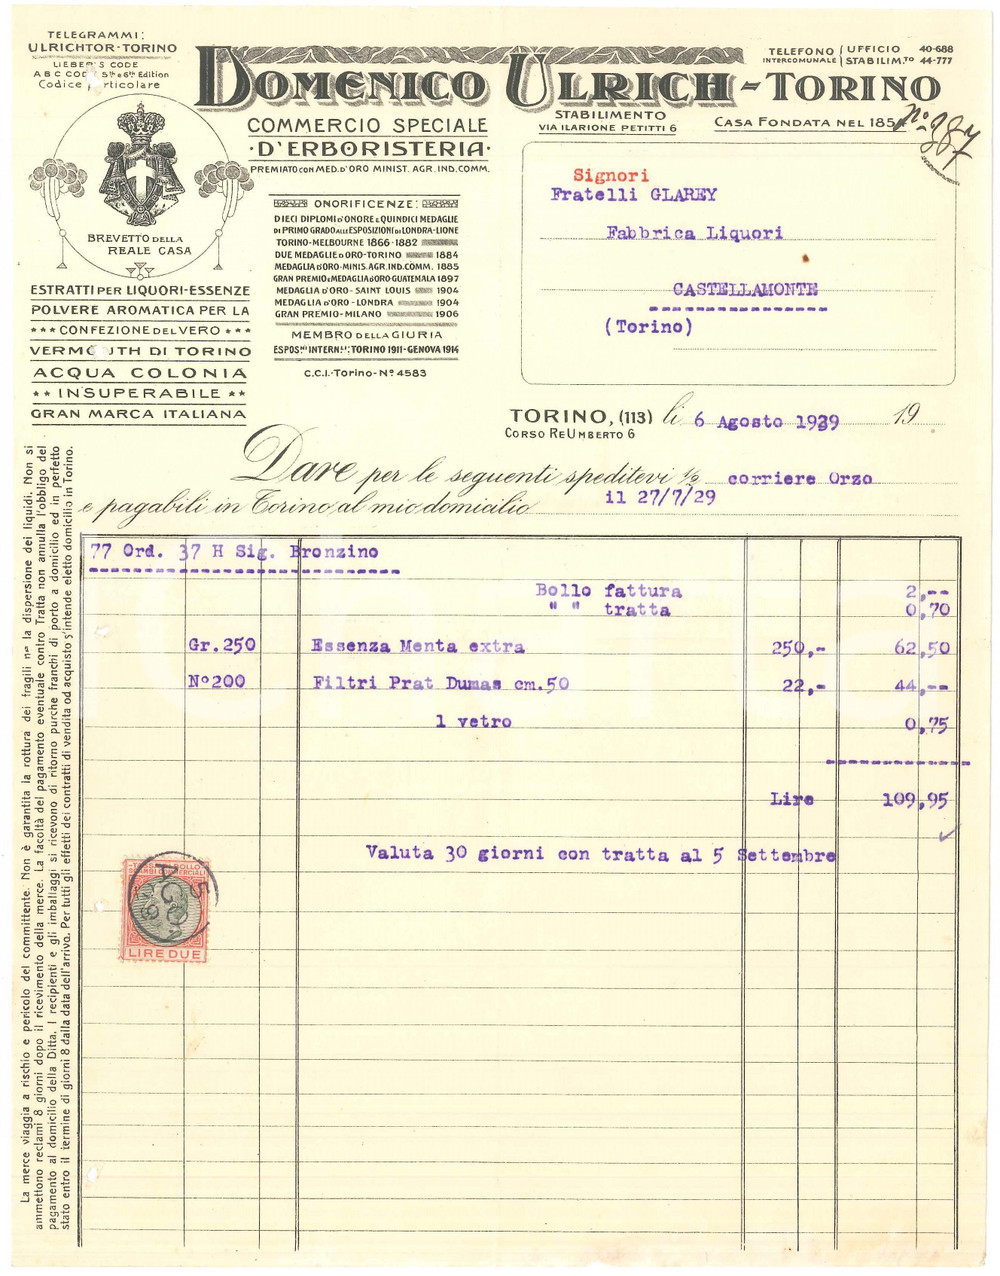 TELEGRAMMI:
ULRICHTOR-TORINO
LIEBER'S CODE
A B C CODE 5th e 6th Edition
Codice particolare
DOMENICO ULRICH-TORINO
TELEFONO INTERCOMUNALE
UFFICIO 40-688
STABILIM.TO 44-777
COMMERCIO SPECIALE
·D'ERBORISTERIA·
PREMIATO CON MED. D'ORO MINIST. AGR. IND. COMM.
STABILIMENTO
VIA ILARIONE PETITTI 6
CASA FONDATA NEL 185
No 987
BREVETTO DELLA
REALE CASA
ONORIFICENZE:
DIECI DIPLOMI D'ONORE E QUINDICI MEDAGLIE
DI PRIMO GRADO ALLE ESPOSIZIONI DI LONDRA-LIONE
TORINO-MELBOURNE 1866-1882
DUE MEDAGLIE D'ORO-TORINO 1884
MEDAGLIA D'ORO-MINIS. AGR. IND. COMM. 1885
GRAN PREMIO E MEDAGLIA D'ORO GUATEMALA 1897
MEDAGLIA D'ORO-SAINT LOUIS 1904
MEDAGLIA D'ORO-LONDRA 1904
GRAN PREMIO-MILANO 1906
MEMBRO DELLA GIURIA
ESPOS.NI INTERN.LI TORINO 1911-GENOVA 1914
C.C.I.-Torino-No 4583
ESTRATTI PER LIQUORI-ESSENZE
POLVERE AROMATICA PER LA
*** CONFEZIONE DEL VERO ***
VERMOUTH DI TORINO
ACQUA COLONIA
** INSUPERABILE **
GRAN MARCA ITALIANA
Signori
Fratelli GLAREY
Fabbrica Liquori
CASTELLAMONTE
(Torino)
TORINO, (113) li 6 Agosto 1929 19
CORSO RE UMBERTO 6
Dare per le seguenti speditevi ½ corriere Orzo
e pagabili in Torino al mio domicilio il 27/7/29
77 Ord. 37 H Sig. Bronzino
Bollo fattura 2,--
" " tratta 0,70
Gr.250 Essenza Menta extra 250,- 62,50
No200 Filtri Prat Dumas cm.50 22,- 44,--
1 vetro 0,75
Lire 109,95
Valuta 30 giorni con tratta al 5 Settembre
5
AGO
LIRE DUE
La merce viaggia a rischio e pericolo del committente. Non è garantita la rottura dei fragili nè la dispersione dei liquidi. Non si
ammettono reclami 8 giorni dopo il ricevimento della merce. La facoltà del pagamento eventuale contro Tratta non annulla l'obbligo del
pagamento al domicilio della Ditta. I recipienti e gli imballaggi si ricevono di ritorno purche franchi di porto a domicilio ed in perfetto
stato entro il termine di giorni 8 dalla data dell'arrivo. Per tutti gli effetti dei contratti di vendita od acquisto s'intende eletto domicilio in Torino.